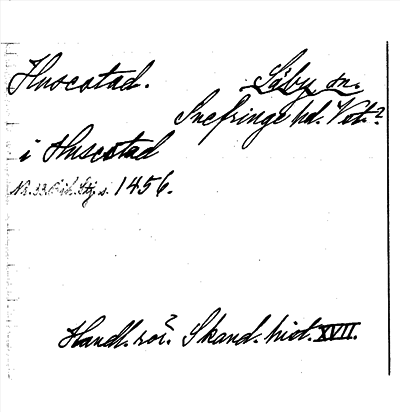 Huscstad. Läby sn.
Snefringe hd. Vstm?
i Huscstad
1456.
Handl. rör? Skand. hist. XVII.